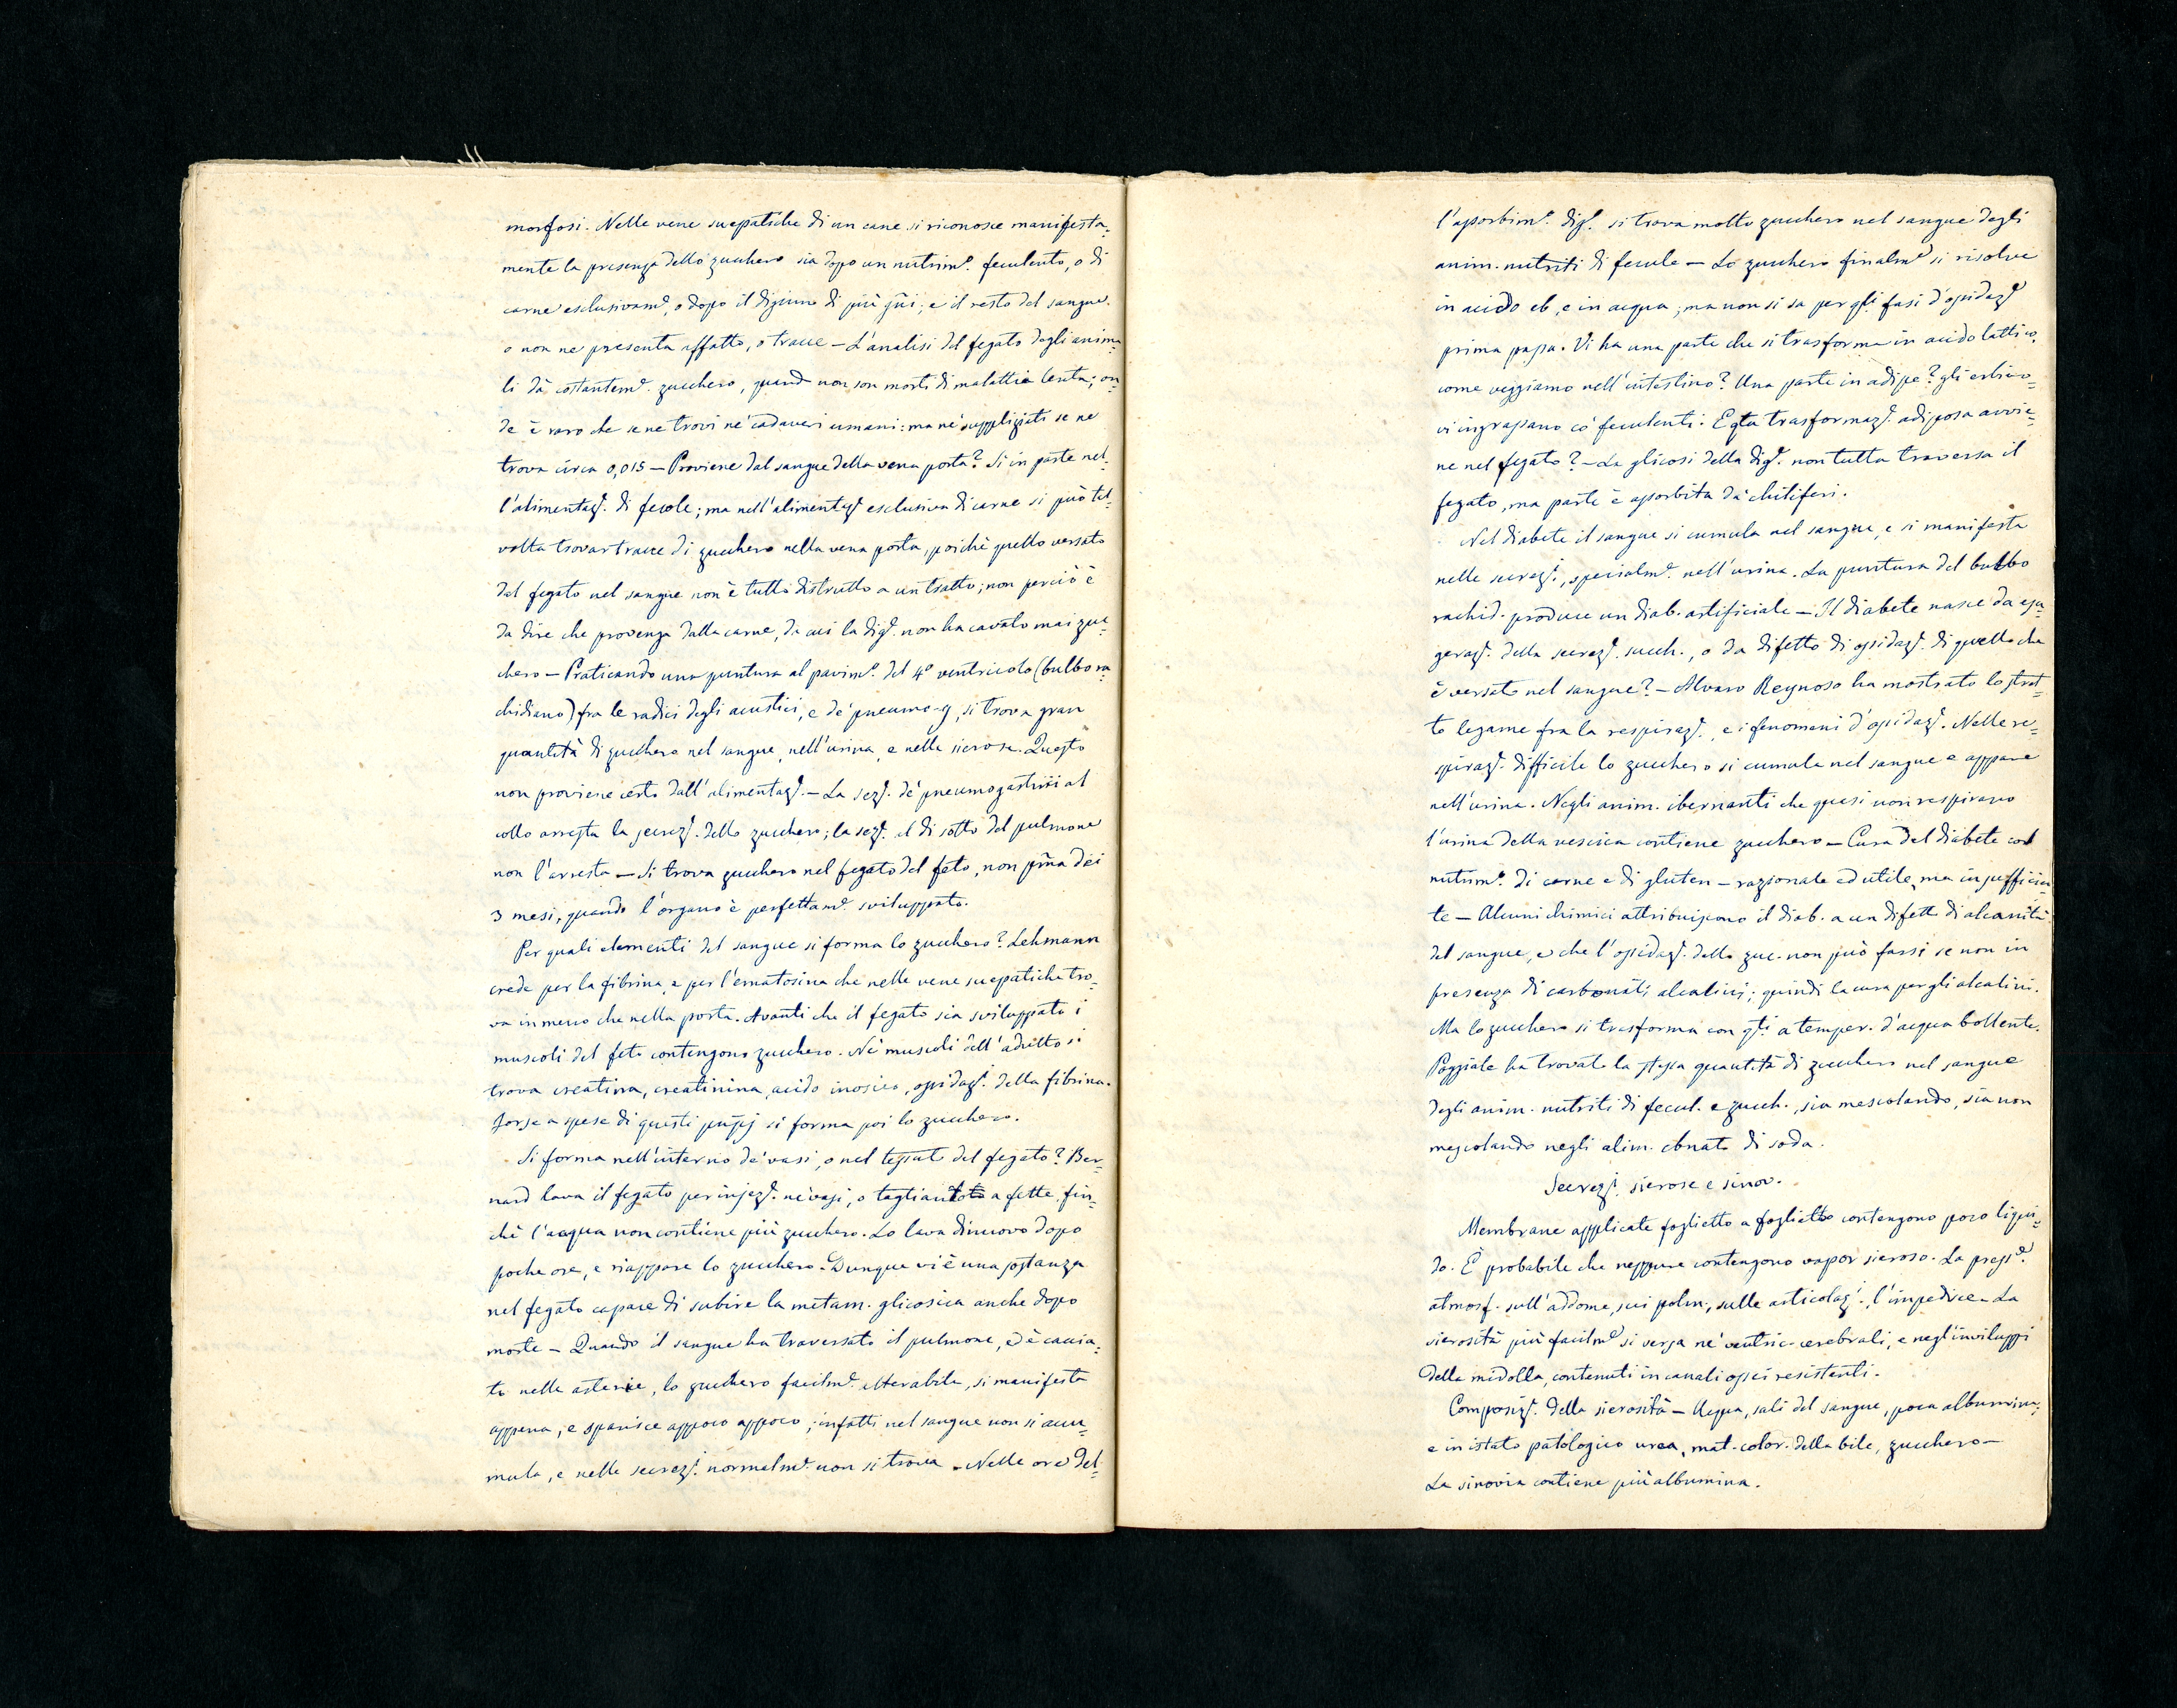 morfosi. Nelle vene suepatiche di un cane si riconosce manifesta=
mente la presenza dello zucchero sia dopo un nutrim.º feculento, o di
carne esclusivam.e, o dopo il digiuno di più gni; e il resto del sangue
o non ne presenta affatto, o tracce — L'analisi del fegato degli anima=
li dà costantem.e zucchero, quand non son morti di malattia lenta; on=
de è raro che se ne trovi ne' cadaveri umani: ma ne' suppliziati se ne
trova circa 0,015 — Proviene dal sangue della vena porta? Sì in parte nel=
l'alimentaz.e di fecole; ma nell'alimentaz.e esclusiva di carne si può tal=
volta trovar tracce di zucchero nella vena porta, poichè quello versato
dal fegato nel sangue non è tutto distrutto a un tratto; non perciò è
da dire che provenga dalla carne, da cui la dig.e non ha cavato mai zuc=
chero — Praticando una puntura al pavim.º del 4º ventricolo (bulbo ra=
chidiano) fra le radici degli acustici, e de' pneumo-g, si trova gran
quantità di zucchero nel sangue, nell'urina, e nelle sierose. Questo
non proviene certo dall'alimentaz.e — La sez.e de' pneumogastrici al
collo arresta la secrez.e dello zucchero; la sez.e al di sotto del pulmone
non l'arresta — Si trova zucchero nel fegato del feto, non prīma dei
3 mesi, quando l'organo è perfettam.e sviluppato.
Per quali elementi del sangue si forma lo zucchero? Lehmann
crede per la fibrina, e per l'ematosina che nelle vene suepatiche tro=
va in meno che nella porta. Avanti che il fegato sia sviluppato i
muscoli del feto contengono zucchero. Ne' muscoli dell'adulto si
trova creatina, creatinina, acido inosico, ossidaz.i della fibrina.
Forse a spese di questi si forma poi lo zucchero.
Si forma nell'interno de' vasi, o nel tessuto del fegato? Ber=
nard lava il fegato per injez.e ne' vasi, o a fette, fin=
chè l'acqua non contiene più zucchero. Lo lava dinuovo dopo
poche ore, e riappare lo zucchero. Dunque vi è una sostanza
nel fegato capace di subire la metam. glicosica anche dopo
morte — Quando il sangue ha traversato il pulmone, ed è caccia=
to nelle arterie, lo zucchero facilm.e alterabile, si manifesta
appena, e sparisce appoco appoco; infatti nel sangue non si accu=
mula, e nelle secrez.i normalm.e non si trova. Nelle ore del=
l'assorbim.º dig.e si trova molto zucchero nel sangue degli
anim. nutriti di fecule — Lo zucchero finalm.e si risolve
in acido cb, e in acqua; ma non si sa per qli fasi d'ossidaz.e
prima passa. Vi ha una parte che si trasforma in acido lattico,
come veggiamo nell'intestino? Una parte in adipe? gli erbivo=
vi ingrassano co' feculenti. E qta trasformaz.e adiposa avvie=
ne nel fegato? — La glicosi della dig.e non tutta traversa il
fegato, ma parte è assorbita da' chiliferi.
Nel diabete il sangue si cumula nel sangue, e si manifesta
nelle secrez.i, specialm.e nell'urina. La puntura del bulbo
rachid. produce un diab. artificiale — Il diabete nasce da esa=
geraz.e della secrez.e zucch., o da difetto di ossidaz.e di quello che
è versato nel sangue? — Alvaro Reynoso ha mostrato lo stret=
to legame fra la respiraz.e, e i fenomeni d'ossidaz.e. Nelle re=
spiraz.i difficile lo zucchero si cumula nel sangue e appare
nell'urina. Negli anim. ibernanti che quasi non respirano
l'urina della vescica contiene zucchero — Cura del diabete col
nutrim.º di carne e di gluten — razionale ed utile, ma insufficien=
te — Alcuni chimici attribuiscono il diab. a un difetto di alcanità
del sangue, e che l'ossidaz.e dello zuc. non può farsi se non in
presenza di carbonati alcalini; quindi la cura per gli alcalini.
Ma lo zucchero si trasforma con qti a temper. d'acqua bollente.
Poggiale ha trovato la stessa quantità di zucchero nel sangue
degli anim. nutriti di fecul. e zucch., sia mescolando, sia non
mescolando negli alim. cbnato di soda.
Secrez.i sierose e sinov.
Membrane applicate foglietto a foglietto contengono poco liqui=
do. È probabile che neppure contengono vapor sieroso. La press.e
atmosf. sull'addome, sui polm., sulle articolaz.i, l'impedisce — La
sierosità più facilm.e si versa ne' ventric. cerebrali, e negl'inviluppi
della midolla, contenuti in canali ossei resistenti.
Composiz.e della sierosità — Acqua, sali del sangue, poca albumina;
e in istato patologico urea, mat. color. della bile, zucchero —
La sinovia contiene più albumina.